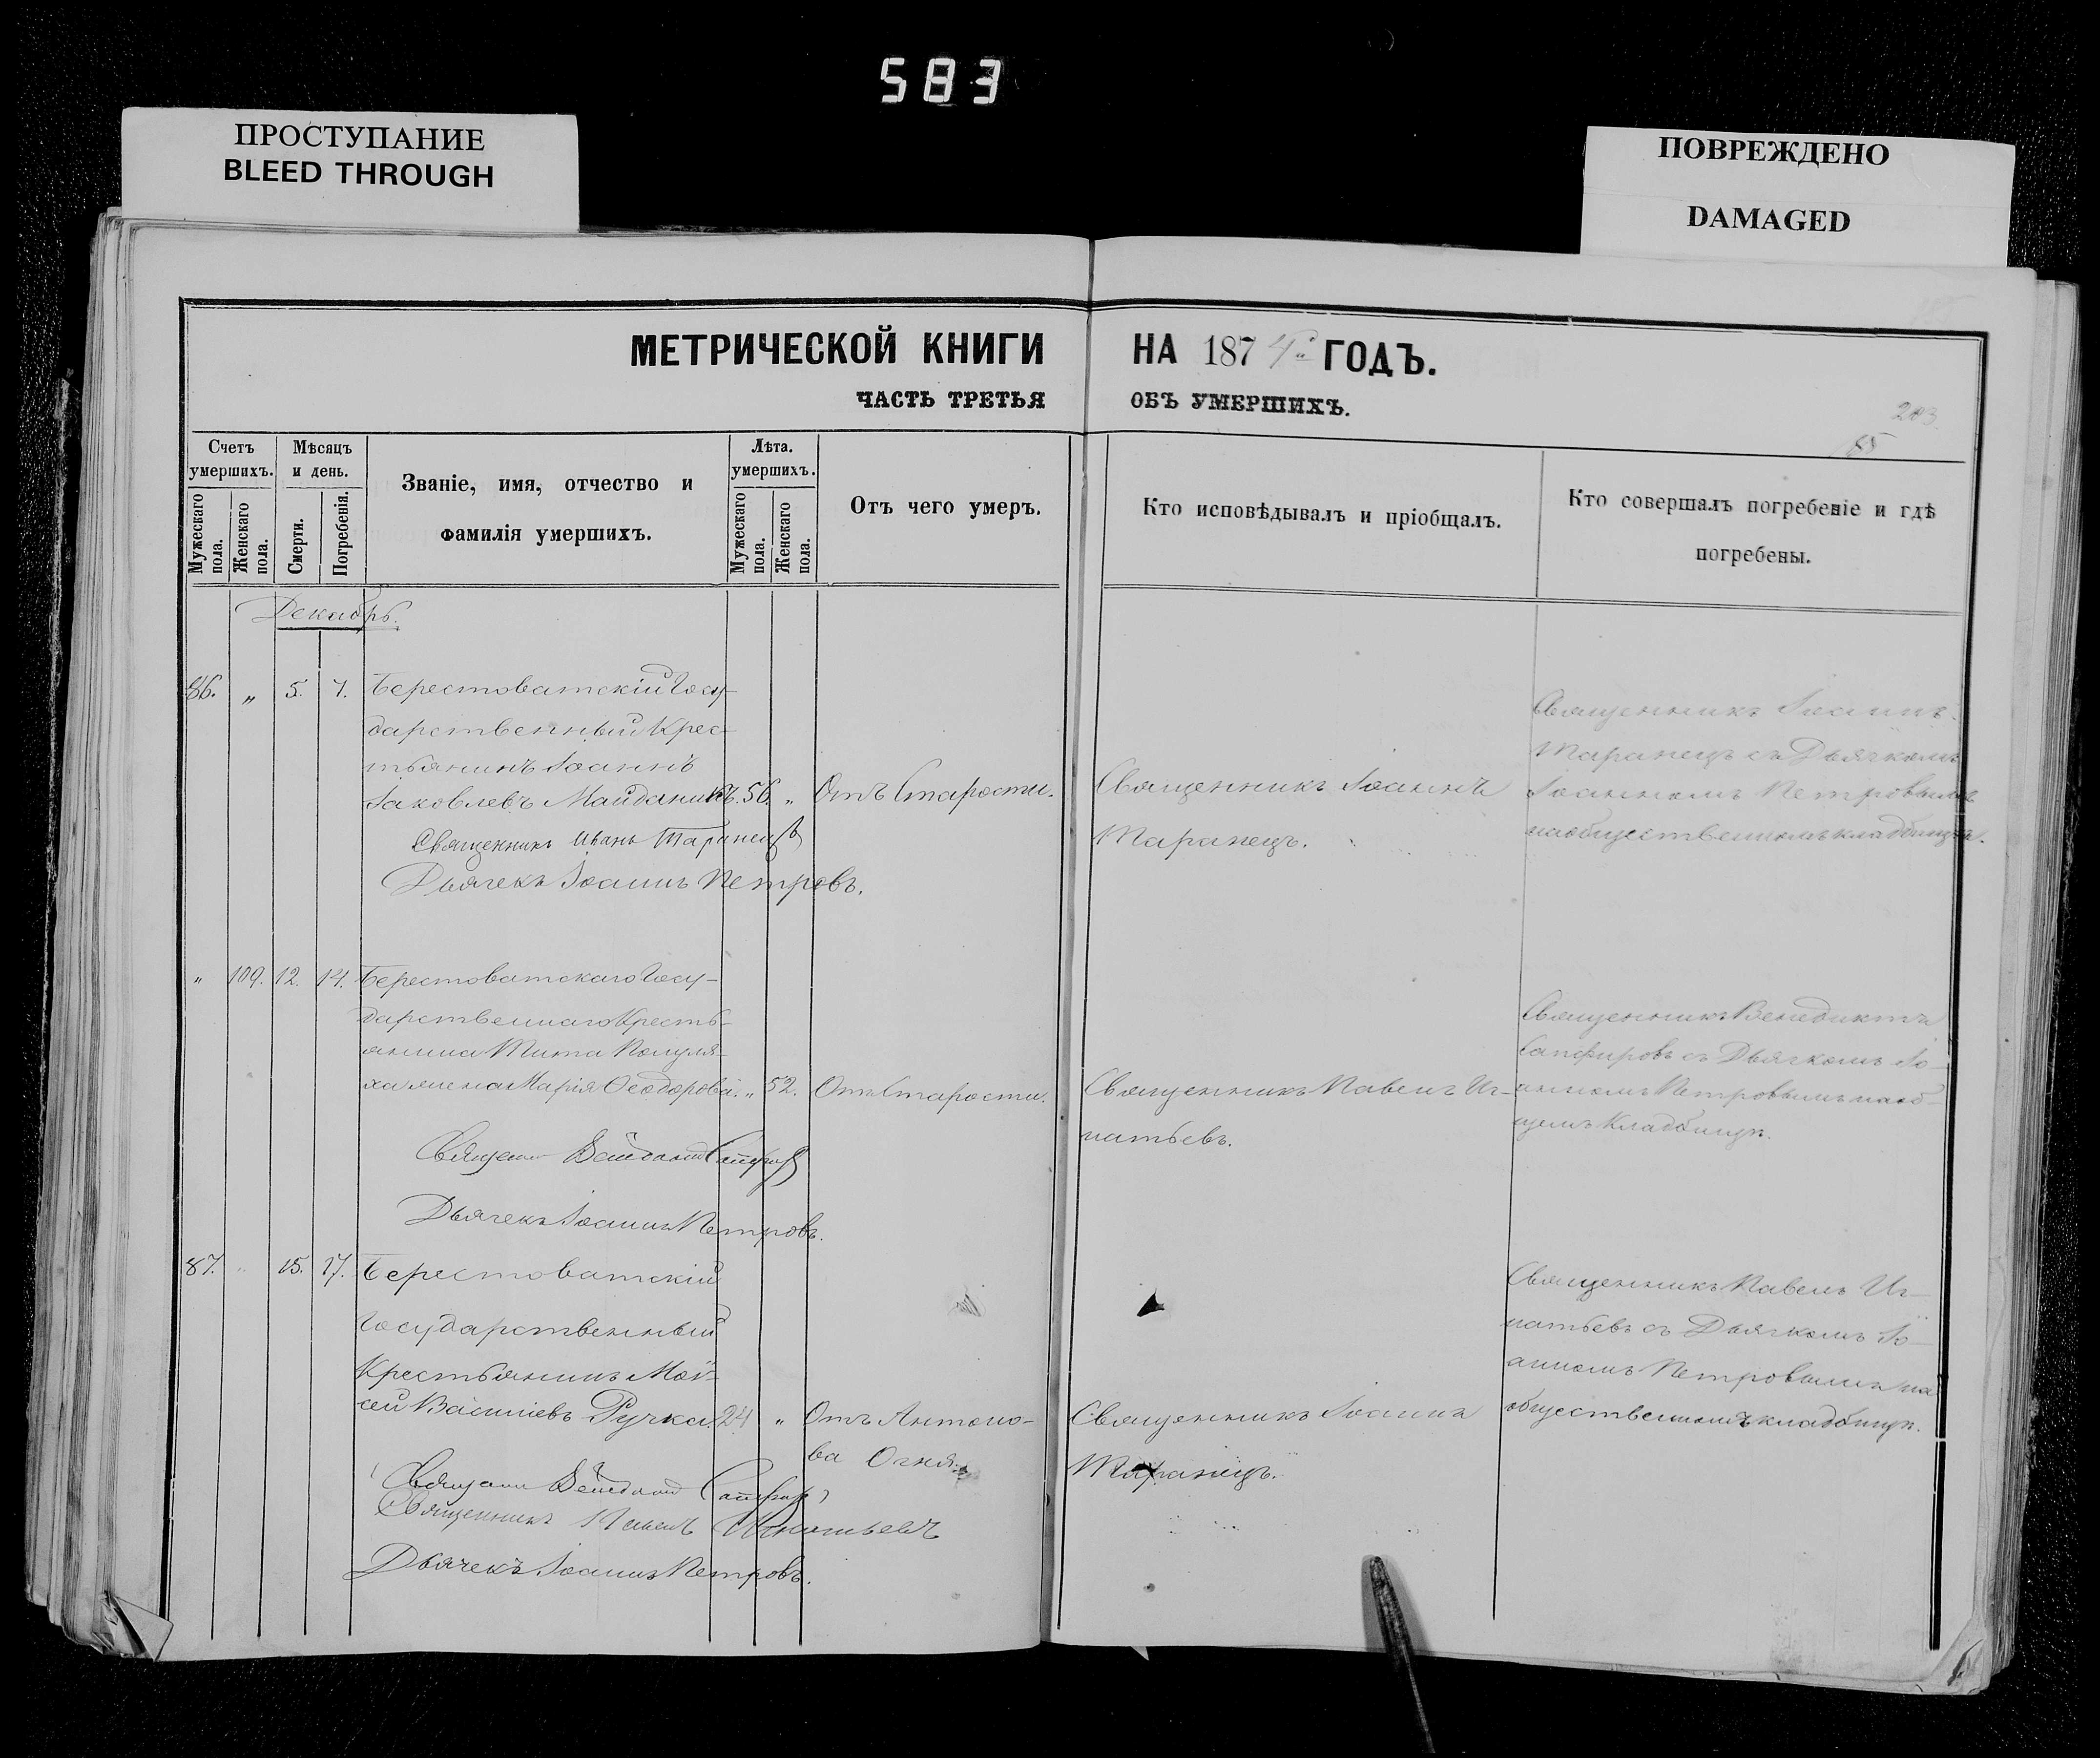 583
ПРОСТУПАНИЕ
BLEED THROUGH
ПОВРЕЖДЕНО
DAMAGED
МЕТРИЧЕСКОЙ КНИГИ НА 1874 ГОДЪ.
ЧАСТЬ ТРЕТЬЯ ОБЪ УМЕРШИХЪ.
203
85
Счетъ умершихъ.
Мужескаго пола.
Женскаго пола.
Мѣсяцъ и день.
Смерти.
Погребенія.
Званіе, имя, отчество и
фамилія умершихъ.
Лѣта. умершихъ.
Мужескаго пола.
Женскаго пола.
Отъ чего умеръ.
Кто исповѣдывалъ и пріобщалъ.
Кто совершалъ погребеніе и гдѣ
погребены.
Декабрь.
86. „ 5. 7. Берестоватскій Госу-
дарственный Крес-
тьянинъ Іоаннъ
Іаковлевъ Майданикъ. 56. „ Отъ Старости.
Священникъ Іоаннъ
Таранецъ.
Священникъ Іоаннъ
Таранецъ съ Дьячкомъ
Іоанномъ Петровымъ
на общественномъ кладбищѣ.
Священникъ Иванъ Таранецъ
Дьячекъ Іоаннъ Петровъ.
„ 109. 12. 14. Берестоватскаго Госу-
дарственнаго Кресть-
янина Тита
жена Марія Ѳеодорова. „ 52. Отъ Старости.
Священникъ Павелъ Иг-
натьевъ.
Священникъ Венедиктъ
Сапфировъ съ Дьячкомъ Іо-
анномъ Петровымъ на об-
щемъ Кладбищѣ.
Дьячекъ Іоаннъ Петровъ.
87. „ 15. 17. Берестоватскій
Государственный
Крестьянинъ Мой-
сей Василіевъ Ручка. 24 „ Отъ Антоно-
ва Огня.
Священникъ Іоаннъ
Таранецъ.
Священникъ Павелъ Иг-
натьевъ съ Дьячкомъ Іо-
анномъ Петровымъ на
общественномъ кладбищѣ.
Священникъ Павелъ Игнатьевъ
Дьячекъ Іоаннъ Петровъ.